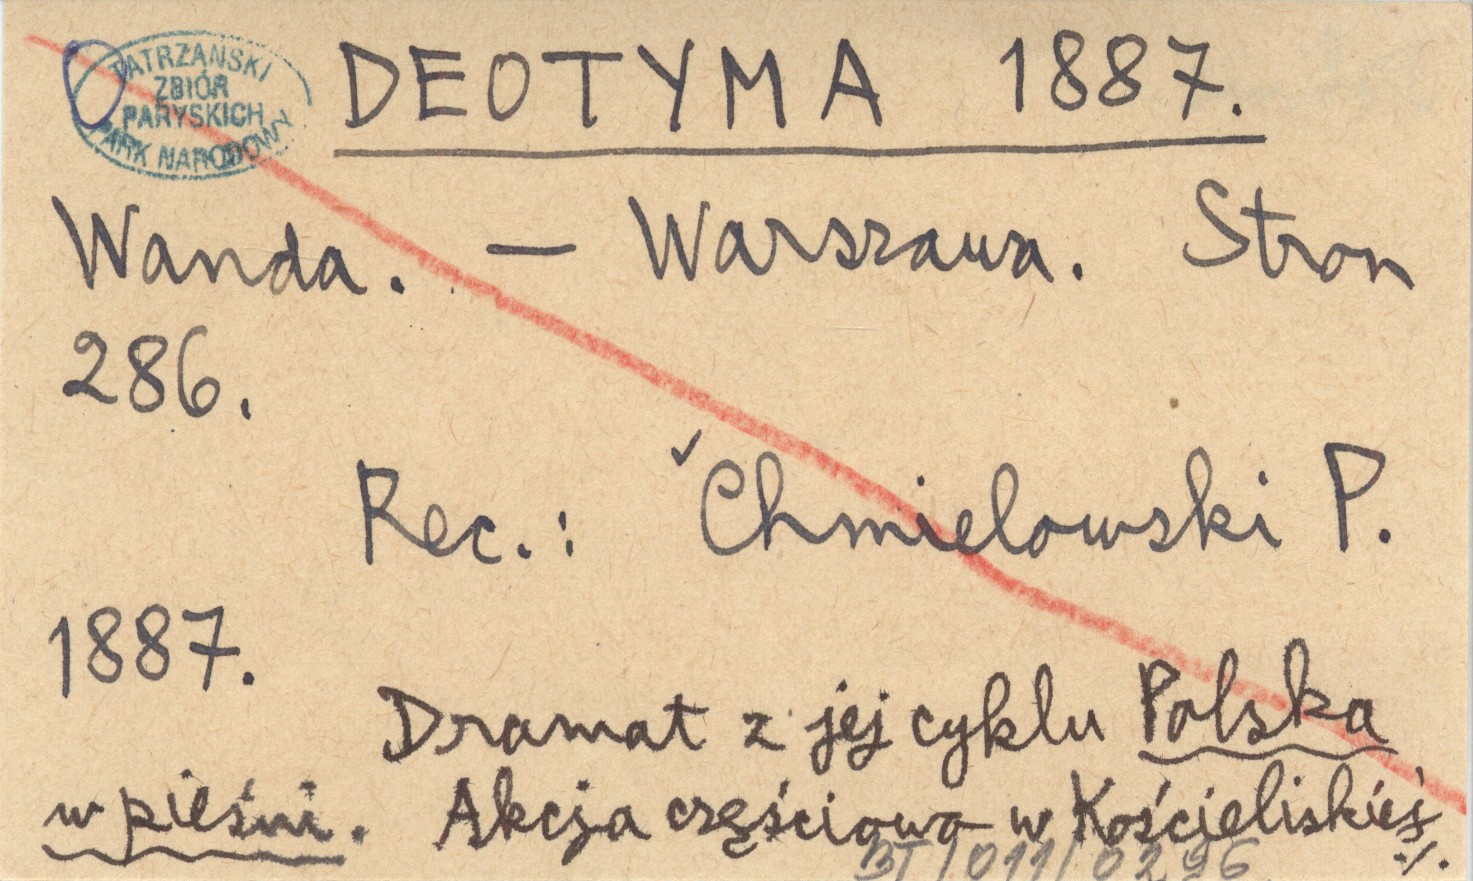 TATRZAŃSKI
ZBIÓR
PARYSKICH
PARK NARODOWY
DEOTYMA 1887.
Wanda. — Warszawa. Stron
286.
Rec.: Chmielowski P.
1887.
Dramat z jej cyklu Polska
w pieśni. Akcja częściowo w Kościeliskiej
./.
BT/011/0296